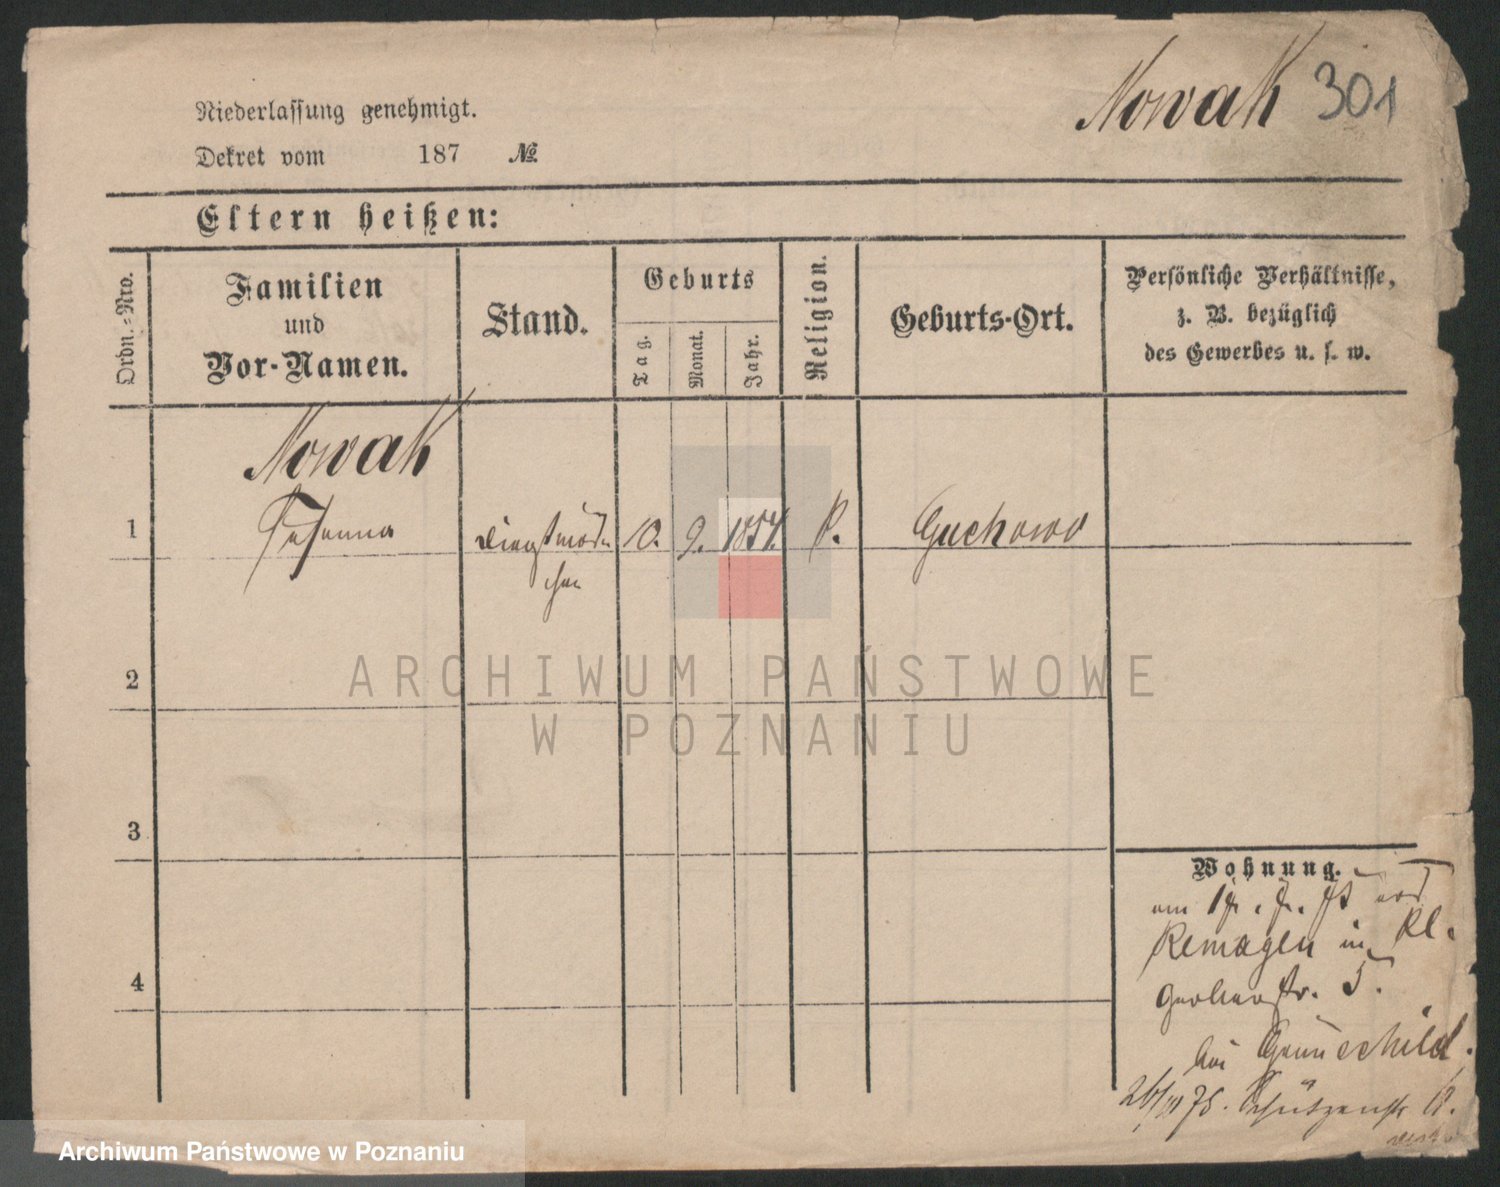 Nowak 301
Niederlassung genehmigt.
Dekret vom 187 №
Eltern heißen:
Ordn.-Nro.
Familien
und
Vor-Namen.
Stand.
Geburts
Tag.
Monat.
Jahr.
Religion.
Geburts-Ort.
Persönliche Verhältnisse,
z. B. bezüglich
des Gewerbes u. s. w.
Nowak
1 Johanna Dienstmäd- 10. 9. 1857. Guchowo
chen
2
3
4
Wohnung.
Remagen in Kl.
Gerberstr. 5.
bei
Schützenstr
ARCHIWUM PAŃSTWOWE
W POZNANIU
Archiwum Państwowe w Poznaniu